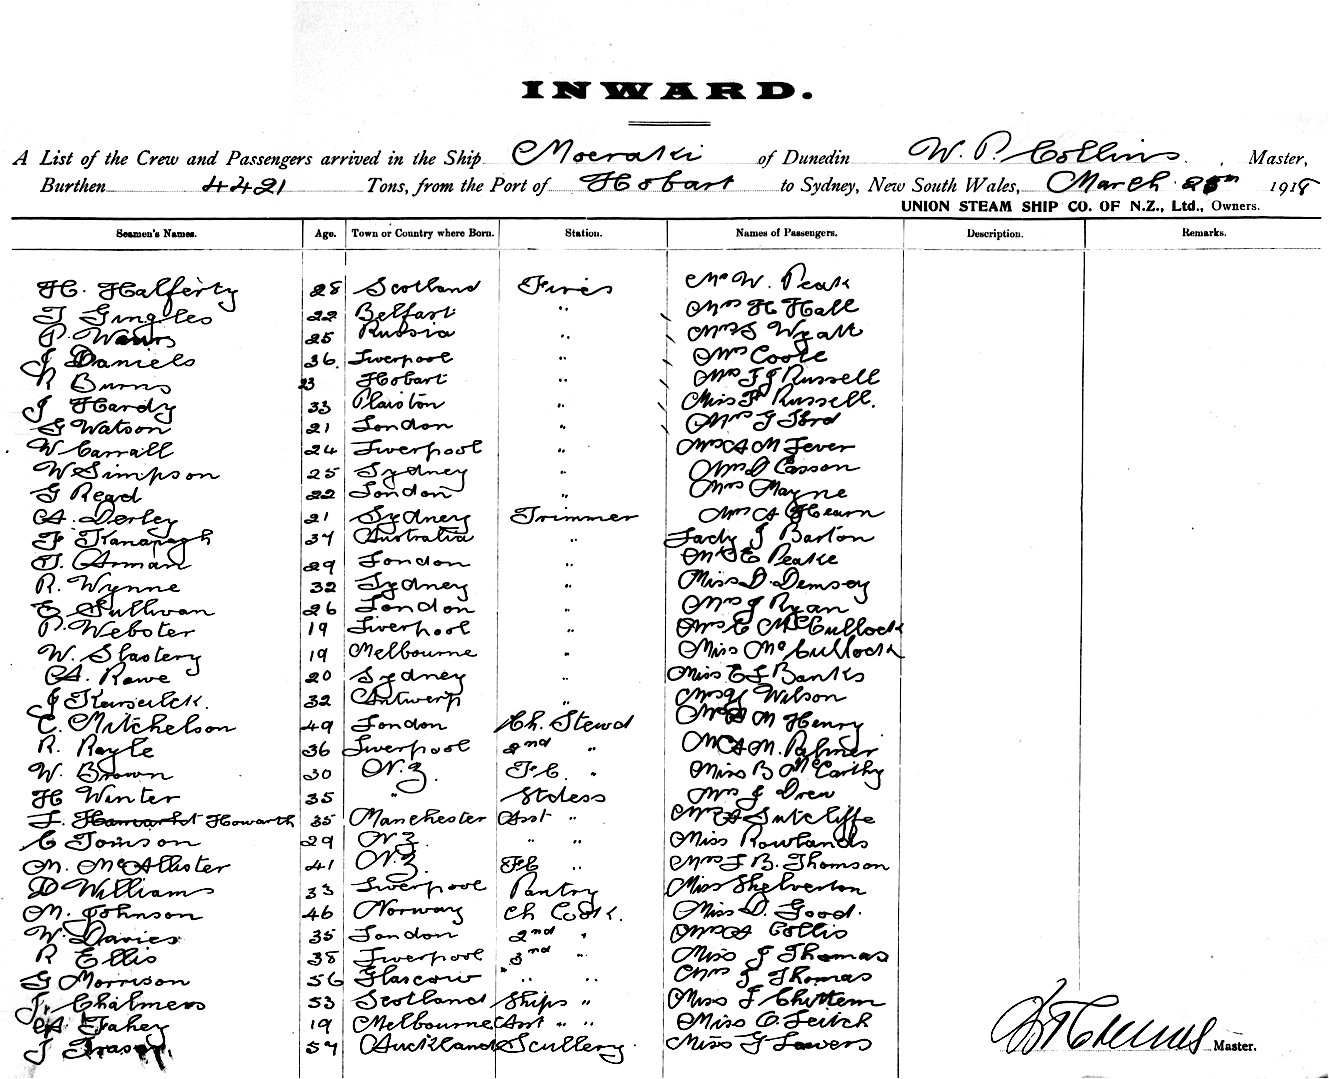 INWARD.
A List of the Crew and Passengers arrived in the Ship Moeraki of Dunedin W. P. Collins, Master,
Burthen 4421 Tons, from the Port of Hobart to Sydney, New South Wales, March 25th 1918
UNION STEAM SHIP CO. OF N.Z., Ltd., Owners.
Seamen's Names. Age. Town or Country where Born. Station. Names of Passengers. Description. Remarks.
H. Halferty 28 Scotland Fires Mr W. Peak
J Gingles 22 Belfast " Mrs H Hall
P. 25 Russia " Mrs S Wyatt
J Daniels 36. Liverpool " Mrs Coote
R Burns 23 Hobart " Mrs J J Russell
J Hardy 33 Plaiston " Miss Russell.
G Watson 21 London " Mrs G Ford
W Carrall 24 Liverpool " Mrs A M Fever
W Simpson 25 Sydney " Mrs D Casson
G Read 22 London " Mrs Mayne
A. Derley 21 Sydney Trimmer Mrs A Hearn
F. Kanapagh 34 Australia " Lady J Barton
T. Arman 29 London " Mrs E Peake
R. Wynne 32 Sydney " Miss D. Demsey
E Sullivan 26 London " Mrs J Ryan
P. Webster 19 Liverpool " Mrs E McCullock
W. Slastery 19 Melbourne " Miss McCullock
A. Rowe 20 Sydney " Miss E J Banks
J 32 Antwerp " Mrs Wilson
C. Mitchelson 49 London Ch. Stewd M Henry
R. Royle 36 Liverpool 2nd " M. Palmer
W. Brown 30 N.Z. F.C. " Miss B McCarthy
H Winter 35 " Stdess Mrs J Drew
J. Howarth 35 Manchester Asst " Sutcliffe
C Tomson 29 N.Z. " " Miss Rowlands
M. McAllister 41 N.Z. FC " Mrs J B. Thomson
D Williams 33 Liverpool Pantry Miss Shelverton
M. Johnson 46 Norway Ch Cook. Miss D. Good.
W. Davies 35 London 2nd " Mrs A Collis
R Ellis 38 Liverpool 3rd " Miss J Thomas
G Morrison 56 Glascow " " " Mrs J Thomas
J. Chalmers 53 Scotland Ships " Miss J Chittem
A. Fahey 19 Melbourne Asst " " Miss O. Leitch
J Fraser. 57 Auckland Scullery. Miss G Lowers
Master.